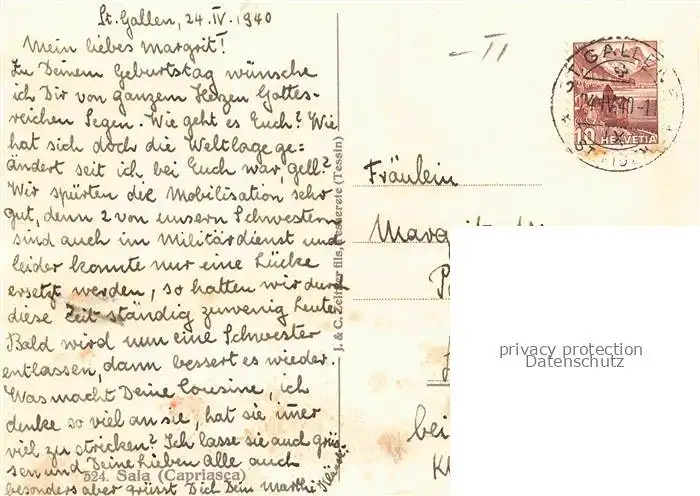 St. Gallen, 24. IV. 1940
Mein liebes Margrit!
Zu Deinem Geburtstag wünsche
ich Dir von ganzem Herzen Gottes-
reichen Segen. Wie geht es Euch? Wie
hat sich doch die Weltlage ge=
ändert seit ich bei Euch war, gell?
Wir spürten die Mobilisation sehr
gut, denn 2 von unsern Schwestern
sind auch im Militärdienst und
leider konnte nur eine Lücke
ersetzt werden, so hatten wir durch
diese Zeit ständig zuwenig Leute.
Bald wird nun eine Schwester
entlassen, dann bessert es wieder.
Was macht Deine Cousine, ich
denke so viel an sie, hat sie imer
viel zu stricken? Ich lasse sie auch grüs-
sen und Deine lieben Alle auch
besonders aber grüsst Dich Dein Marthi
524. Sala (Capriasca)
J. & C. Zeitzer fils, Tesserete (Tessin)
ST. GALLEN
24.IV.40
10 HELVETIA
Fräulein
Margrit
bei
privacy protection
Datenschutz